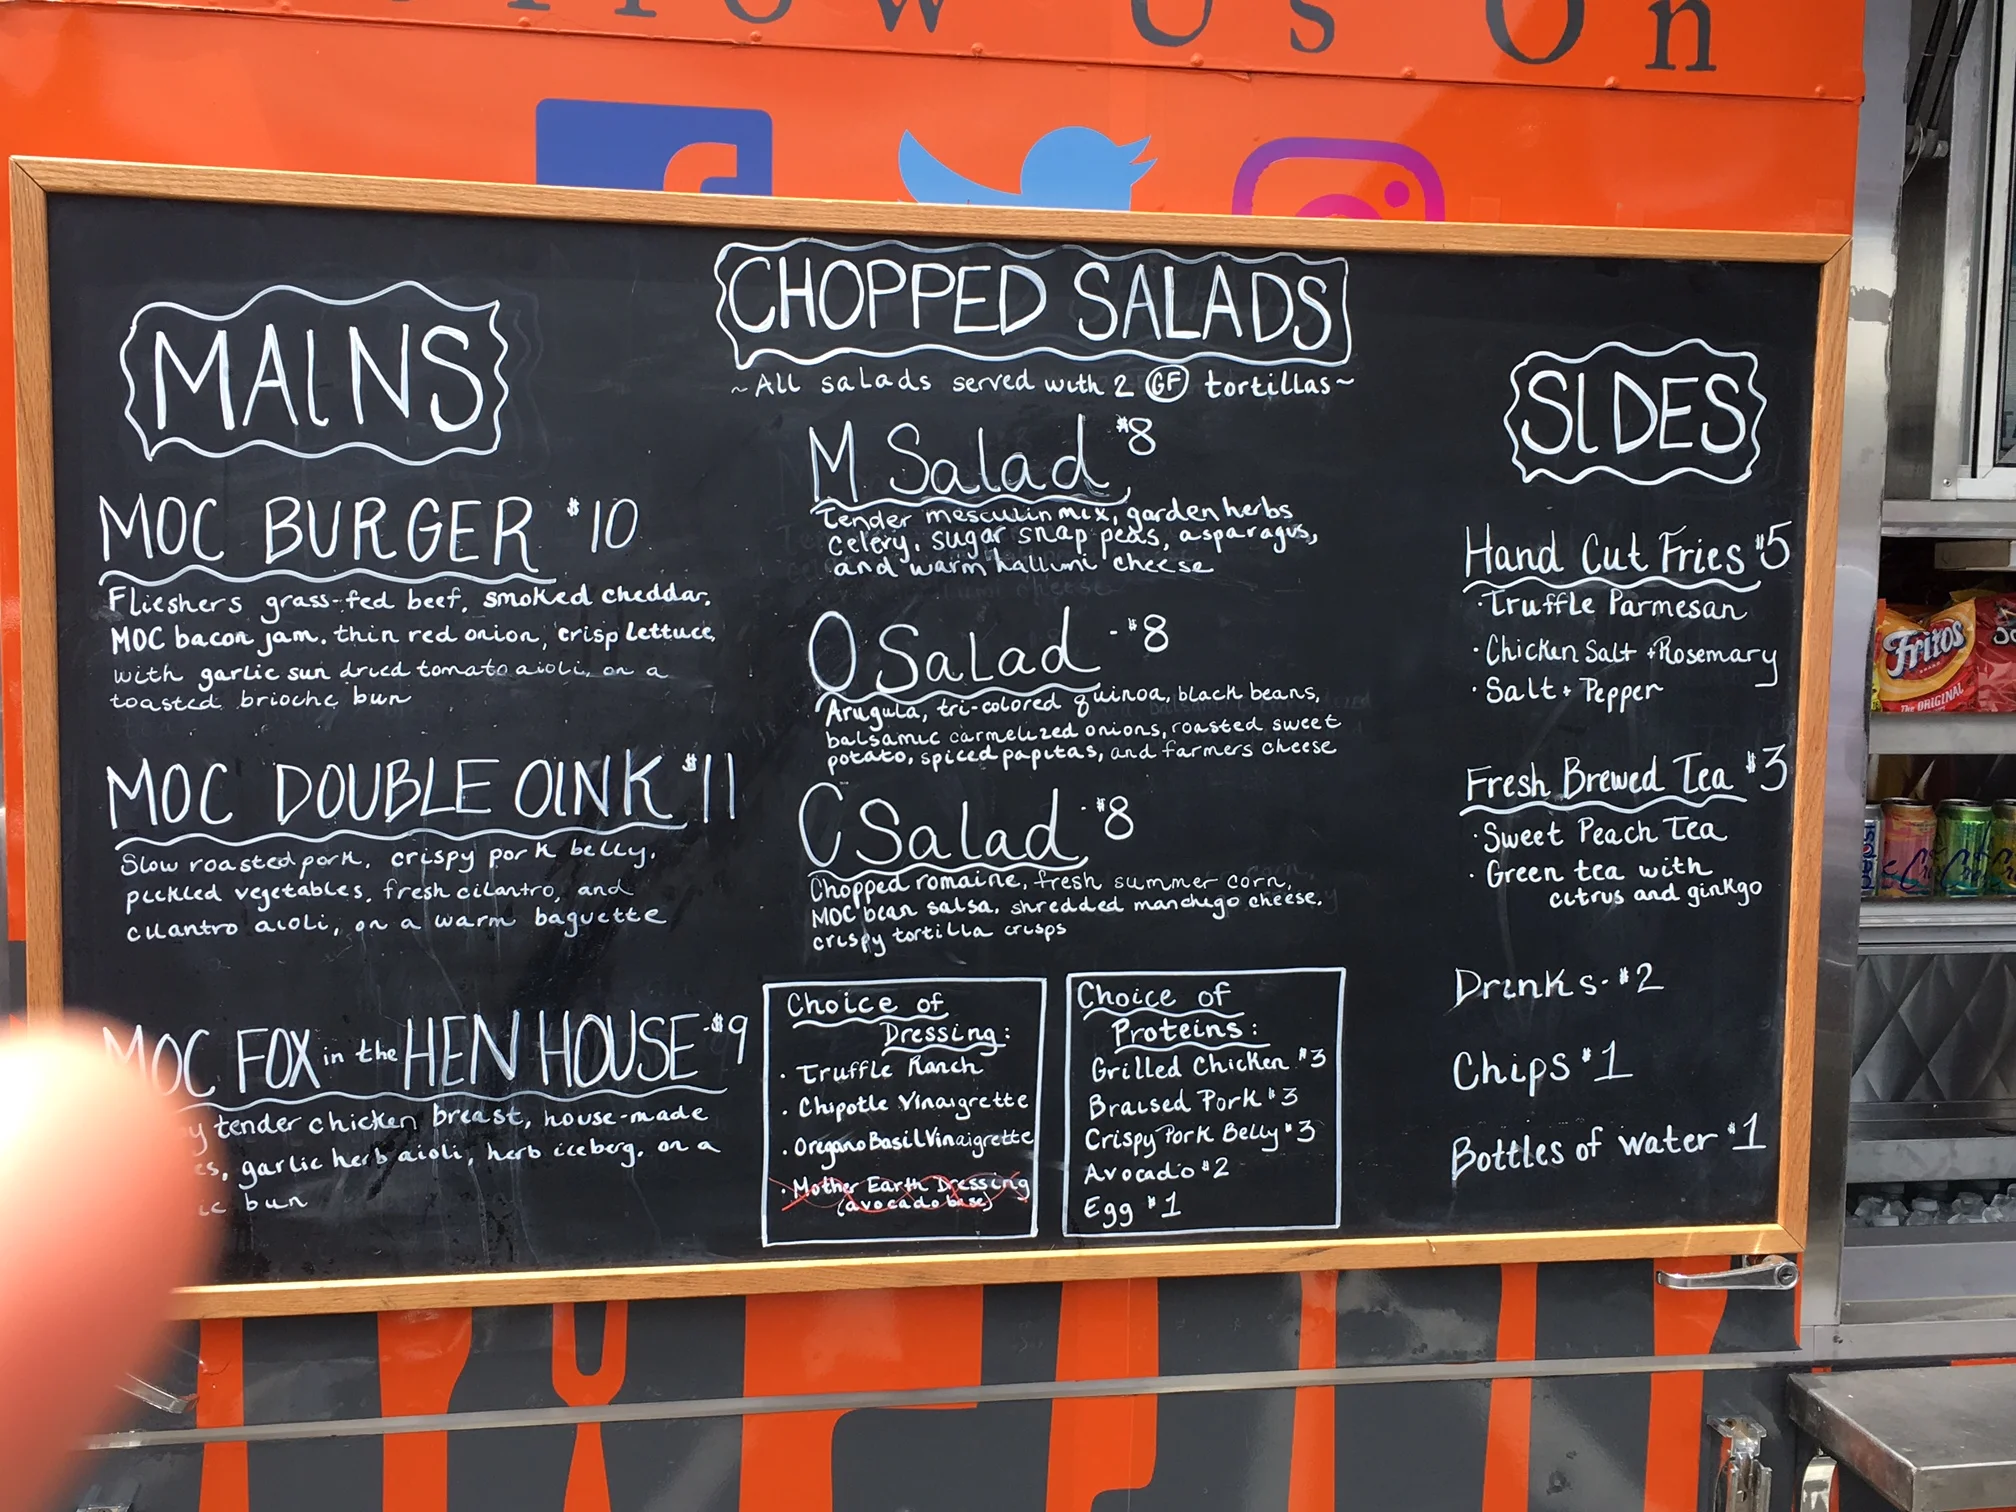 Us On
MAINS
MOC BURGER $10
Flieshers grass-fed beef, smoked cheddar,
MOC bacon jam, thin red onion, crisp lettuce,
with garlic sun dried tomato aioli, on a
toasted brioche bun
MOC DOUBLE OINK $11
Slow roasted pork, crispy pork belly,
pickled vegetables, fresh cilantro, and
cilantro aioli, on a warm baguette
MOC FOX in the HEN HOUSE -$9
tender chicken breast, house-made
garlic herb aioli, herb iceberg, on a
bun
CHOPPED SALADS
~All salads served with 2 GF tortillas~
M Salad $8
Tender mesculin mix, garden herbs
celery, sugar snap peas, asparagus,
and warm hallumi cheese
O Salad -$8
Arugula, tri-colored quinoa, black beans,
balsamic carmelized onions, roasted sweet
potato, spiced papitas, and farmers cheese
C Salad -$8
Chopped romaine, fresh summer corn,
MOC bean salsa, shredded manchego cheese,
crispy tortilla crisps
Choice of
Dressing:
· Truffle Ranch
· Chipotle Vinaigrette
· Oregano Basil Vinaigrette
· Mother Earth Dressing
(avocado base)
Choice of
Proteins:
Grilled Chicken $3
Braised Pork $3
Crispy Pork Belly $3
Avocado $2
Egg $1
SIDES
Hand Cut Fries $5
· Truffle Parmesan
· Chicken Salt + Rosemary
· Salt + Pepper
Fresh Brewed Tea $3
· Sweet Peach Tea
· Green tea with
citrus and ginkgo
Drinks - $2
Chips $1
Bottles of water $1
Fritos
The ORIGINAL